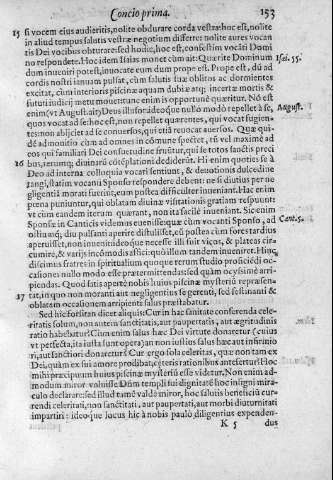 Concio prima. 153
15 si vocem eius audieritis, nolite obdurare corda vestra: hoc est, nolite
in aliud tempus salutis vestræ negotium differre: nolite aures vocan
tis Dei vocibus obturare: sed hodie, hoc est, confestim vocāti Domi
no respondete. Hoc idem Isaias monet cùm ait: Quærite Dominum Isai. 55.
dum inueniri potest, inuocate eum dum prope est. Prope est, dū ad
cordis nostri ianuam pulsat, cùm salutis suæ oblitos ac dormientes
excitat, cùm interioris piscinæ aquam dubiæ atq; incertæ mortis &
futuri iudicij metu mouet: tunc enim is opportunè quæritur. Nō est
enim (vt August. ait) Deus illusor: ideoque nullo modo repellet à se, August.
quos vocat ad se: hoc est, non repellet quærentes, qui vocat fugien-
tes: non abijciet ad se conuersos, qui etiā reuocat auersos. Quæ qui-
dē admonitio cùm ad omnes in cōmune spectet, tū vel maximè ad
eos qui familiari Dei consuetudine fruūtur, qui se totos sanctis preci
16 bus, rerumq; diuinarū cōtēplationi dediderūt. Hi enim quoties se à
Deo ad interna colloquia vocari sentiunt, & deuotionis dulcedine
tangi, statim vocanti Sponso respondere debent: ne si diutius per ne
gligentiā morati fuerint, eum postea difficulter inueniant. Hac enim
pœna puniuntur, qui oblatam diuinæ visitationis gratiam respuunt:
vt cùm eandem iterum quærant, non ita facilè inueniant. Sic enim
Sponsæ in Canticis videmus euenisse: quæ cùm vocanti Sponso, ad Cant. 5.
ostiumq; diu pulsanti aperire distulisset, eū postea cùm fores tardius
aperuisset, non inuenit: ideoque necesse illi fuit vicos, & plateas cir-
cumire, & varijs incōmodis affici: quò illum tandem inueniret. Hinc
discimus fratres in spiritualium quoque rerum studio proficiēdi oc-
casiones nullo modo esse prætermittendas: sed quàm ocyssimè arri-
piendas. Quod satis apertè nobis huius piscinæ mysteriū repræsen-
17 tat, in quo non moranti aut negligentius se gerenti, sed festinanti &
oblatam occasionem arripienti salus præstabatur.
Sed hic forsitan dicet aliquis: Cur in hac sanitate conferenda cele-
ritatis solum, non autem sanctitatis, aut paupertatis, aut ægritudinis
ratio habebatur? Cùm enim salus hæc Dei virtute donaretur (cuius
vt perfecta, ita iusta sunt opera) an non iustius salus hæc aut infirmio
ri, aut sanctiori donaretur? Cur ergo sola celeritas, quæ non tam ex
Dei, quàm ex sui amore prodibat, cæteris rationibus antefertur? Hoc
mihi præcipuum huius piscinæ mysteriū esse videtur. Non enim ad-
modum miror voluisse Dūm templi sui dignitatē hoc insigni mira-
culo declarare: sed illud tamē valdè miror, hoc salutis beneficiū cur-
rendi celeritati, non sanctitati, aut paupertati, aut morbi diuturnitati
impartiri: ideoque locus hic à nobis paulò diligentius expenden-
K 5 dus